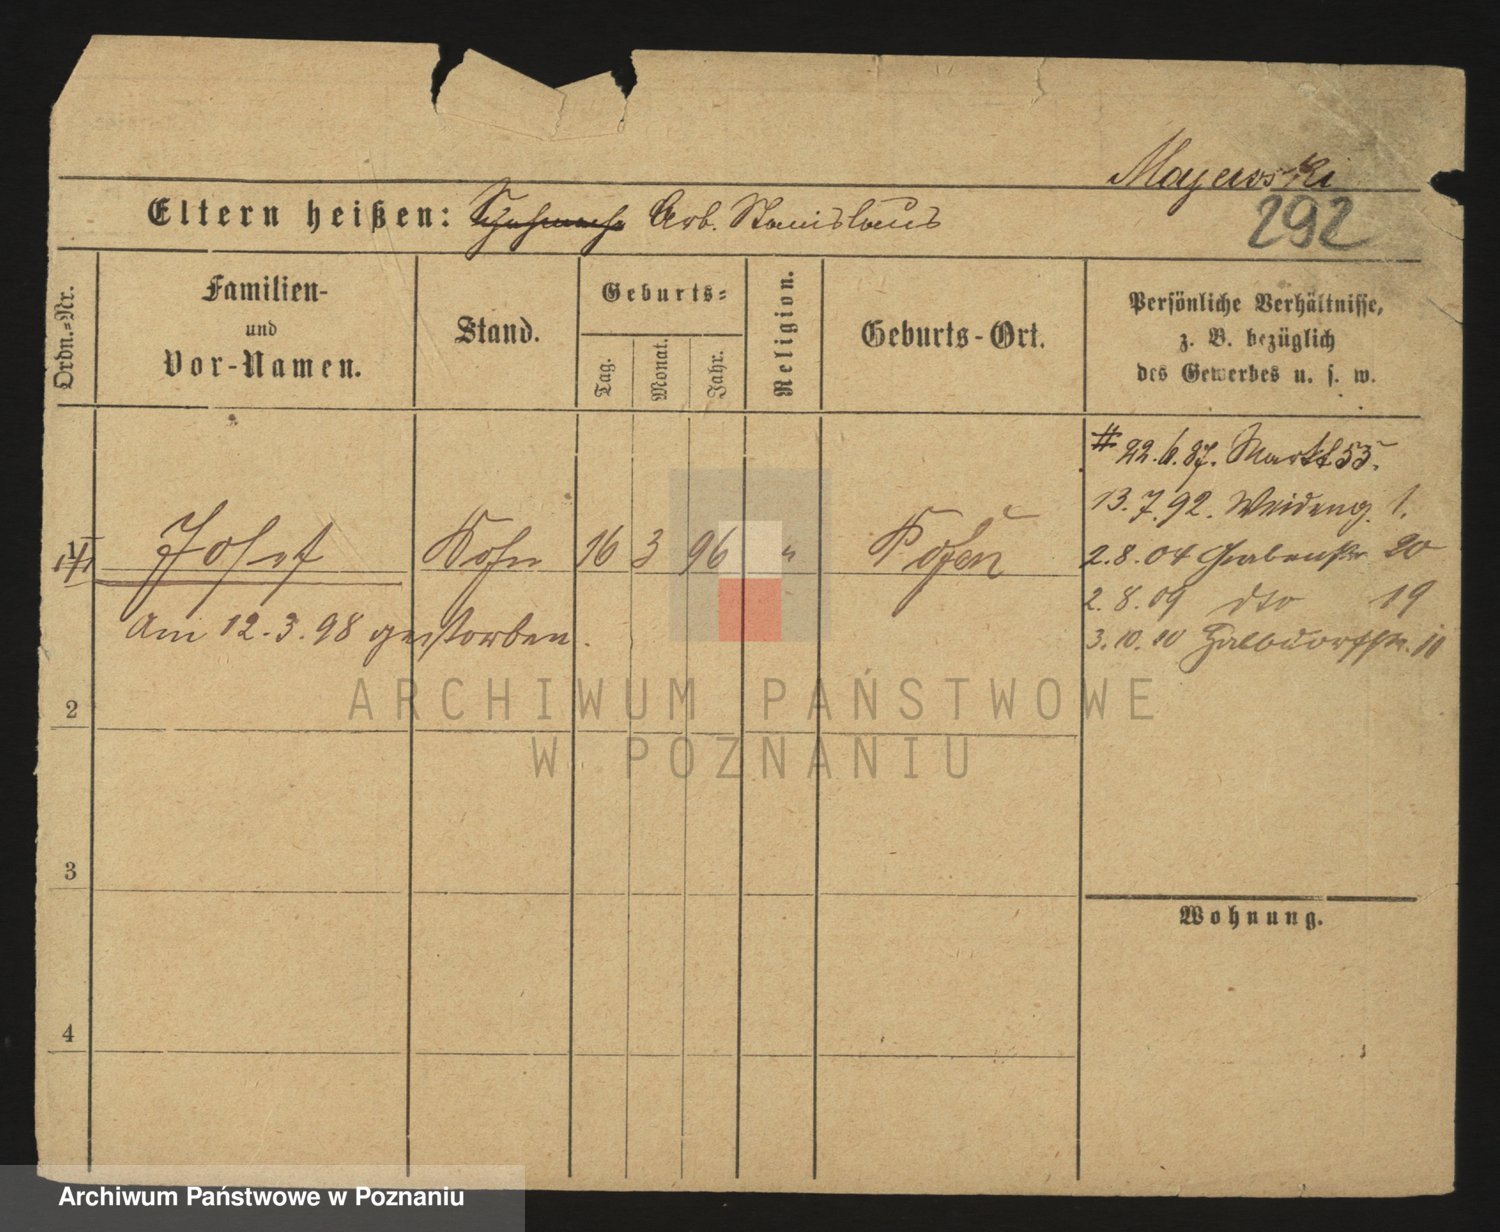 Mayewski
292
Eltern heißen: Schuhmach. Arb. Stanislaus
Ordn.=Nr.
Familien-
und
Vor-Namen.
Stand.
Geburts=
Tag.
Monat.
Jahr.
Religion.
Geburts-Ort.
Persönliche Verhältnisse,
z. B. bezüglich
des Gewerbes u. s. w.
22.6.87. Markt 55.
13.7.92. Weideng. 1.
2.8.04 Grabenstr. 20
2.8.09 dto 19
3.10.10 Halbdorfstr. 10
1 Josef Sohn 16 3 96 " Posen
Am 12.3.98 gestorben.
2
3
4
Wohnung.
ARCHIWUM PAŃSTWOWE
W POZNANIU
Archiwum Państwowe w Poznaniu